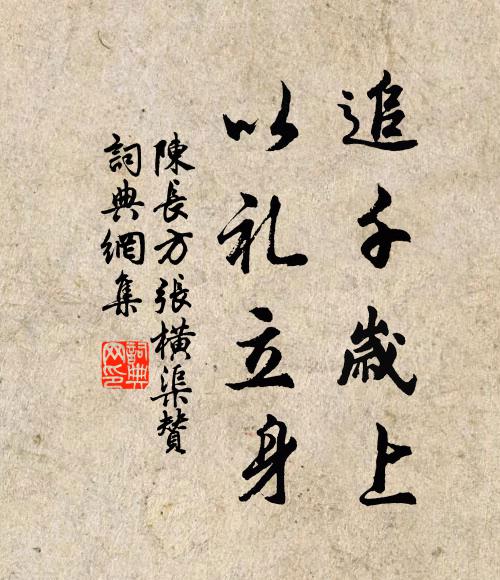 追千歲上
以礼立身
陳長方張橫渠贊
詞典網集
詞典網印